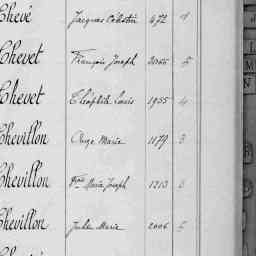 Chevé Jacques Célestin 472 1
Chevet François Joseph 2065 5
Chevet Louis 1955 4
Chevillon Ange Marie 1179 3
Chevillon Marie Joseph 1213 3
Chevillon Jules Marie 2006 5